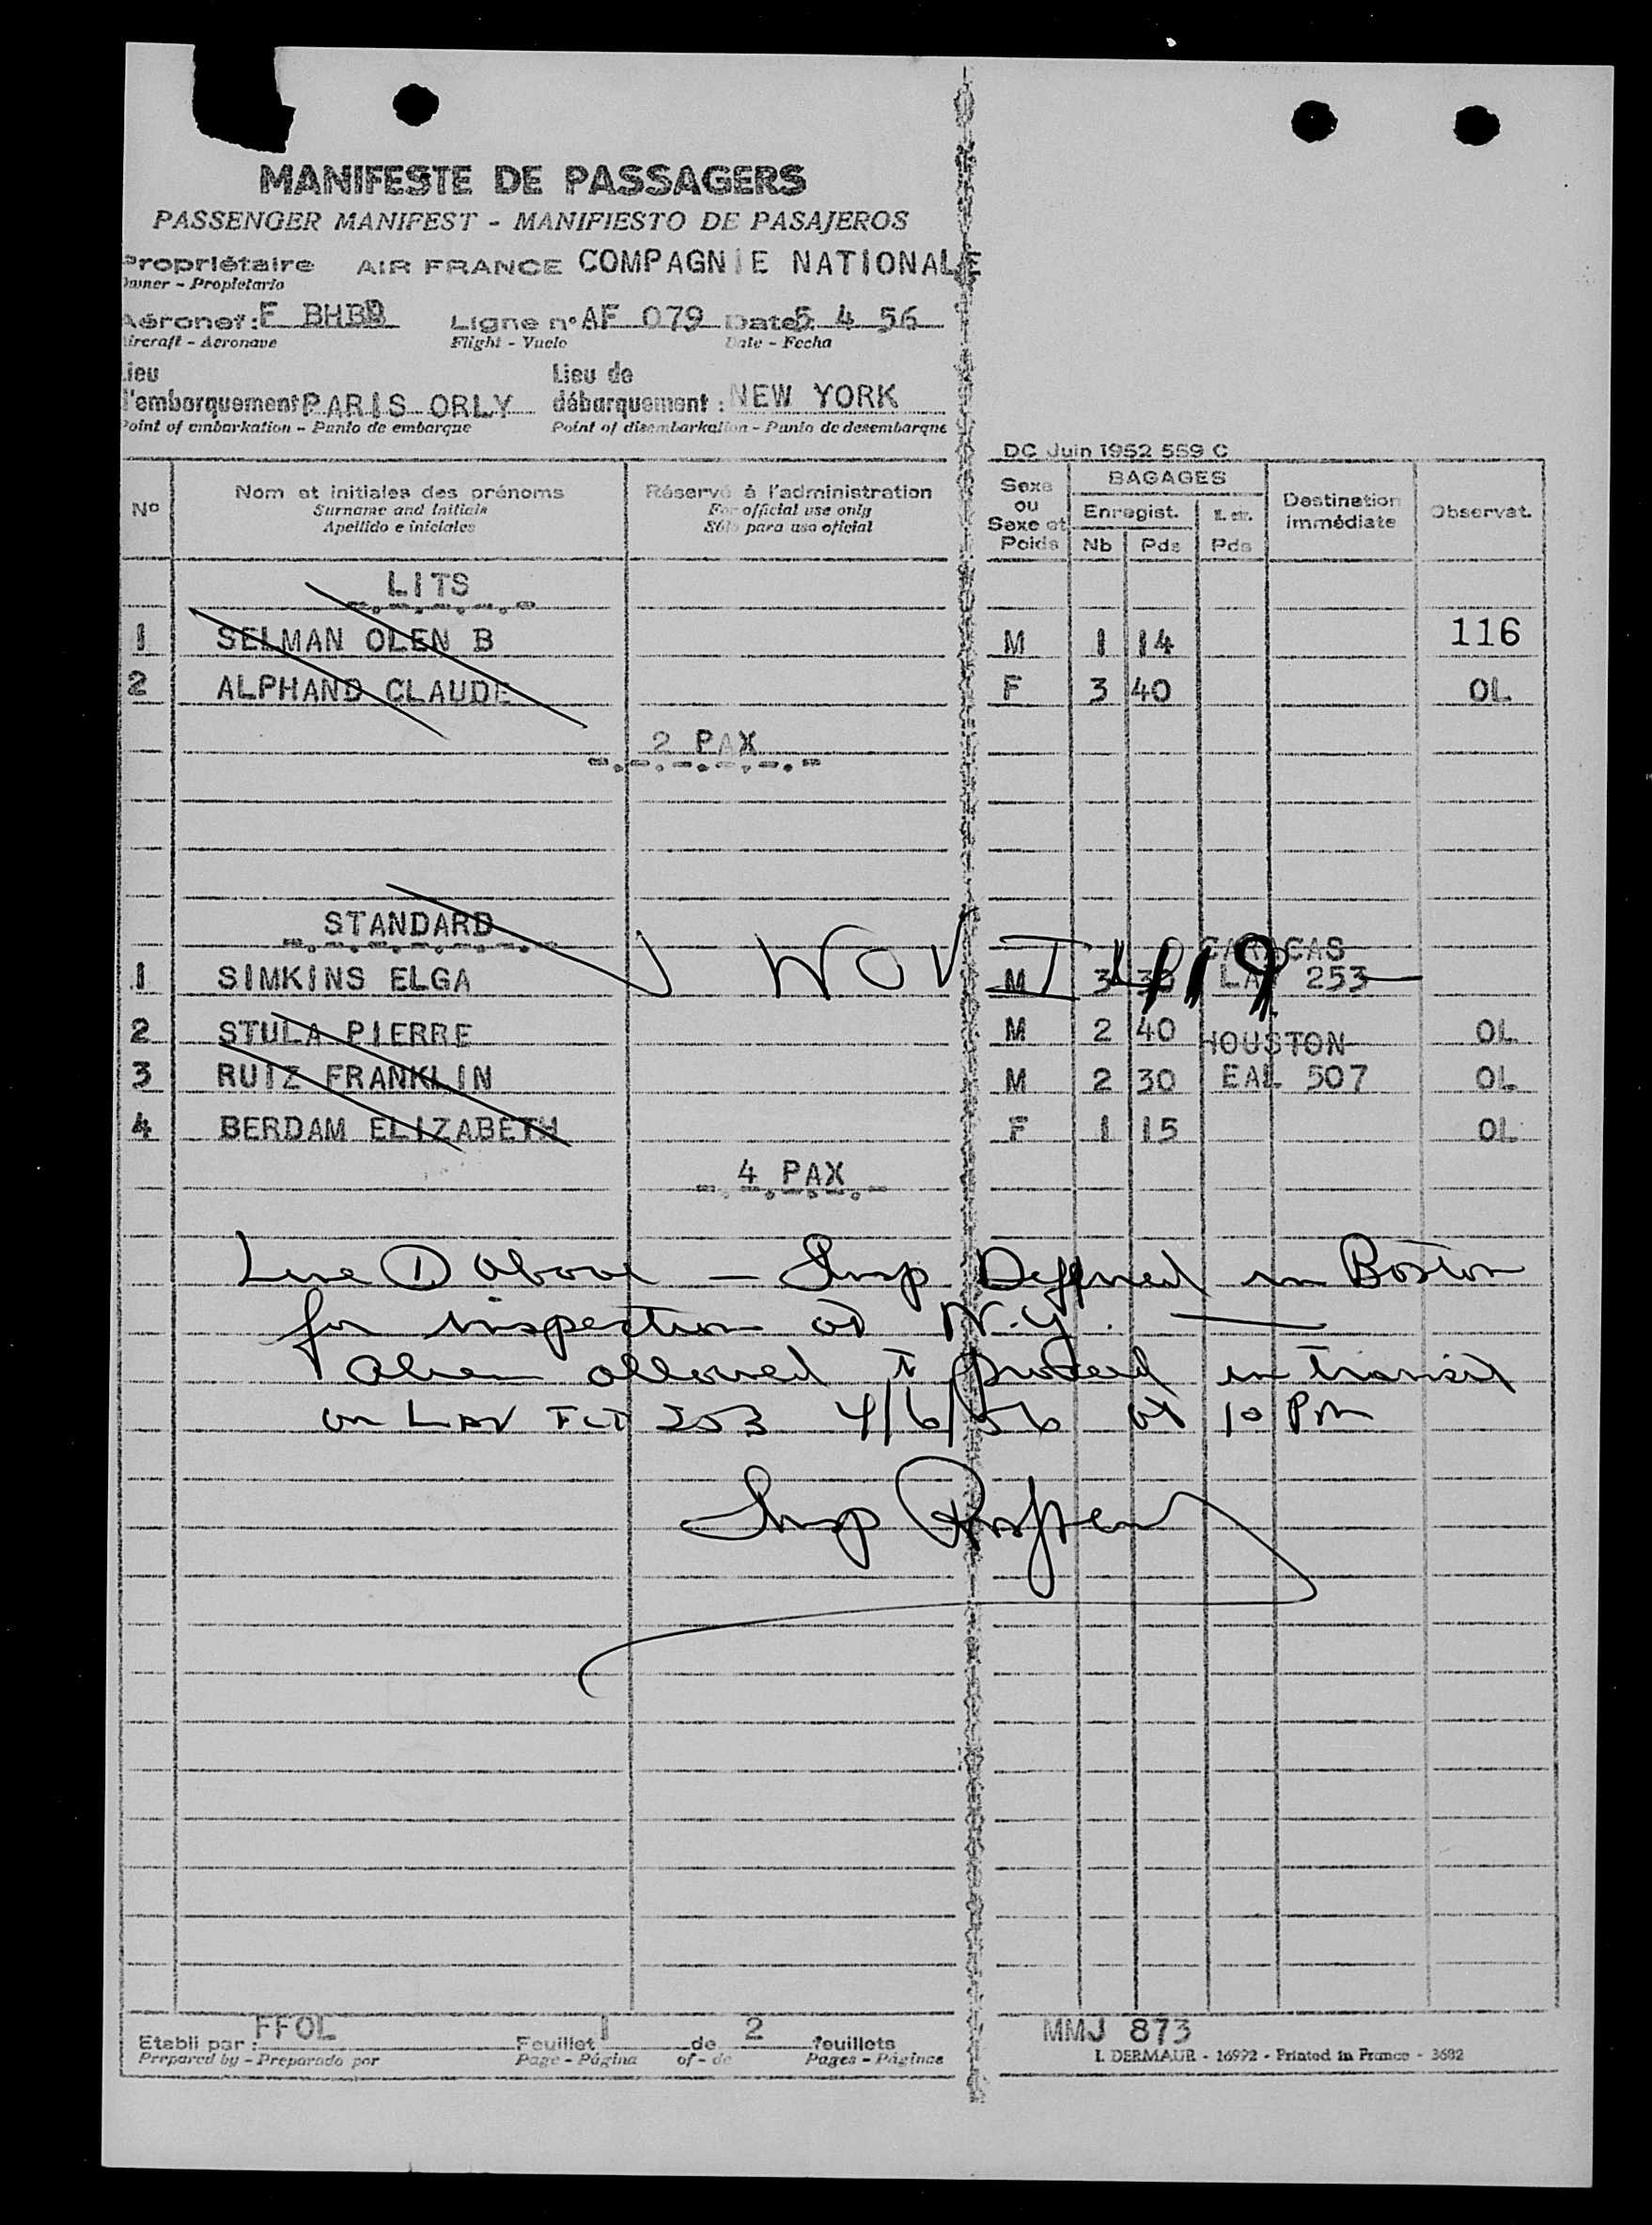 MANIFESTE DE PASSAGERS
PASSENGER MANIFEST - MANIFIESTO DE PASAJEROS
Propriétaire AIR FRANCE COMPAGNIE NATIONALE
Owner - Propietario
Aéronef: F BHBB Ligne n° AF 079 Date: 5 4 56
Aircraft - Aeronave Flight - Vuelo Date - Fecha
Lieu Lieu de
d'embarquement PARIS ORLY débarquement: NEW YORK
Point of embarkation - Punto de embarque Point of disembarkation - Punto de desembarque
DC Juin 1952 559 C
Nº Nom et initiales des prénoms Réservé à l'administration Sexe ou Sexe et Poids BAGAGES Destination immédiate Observat.
Surname and initials For official use only Enregist.
Apellido e iniciales Sólo para uso oficial Nb Pds Pds
LITS
1 SELMAN OLEN B M 1 14 116
2 ALPHAND CLAUDE F 3 40 OL
2 PAX
STANDARD
CARACAS
1 SIMKINS ELGA M 3 30 LAV 253
2 STULA PIERRE M 2 40 OL
HOUSTON
3 RUIZ FRANKLIN M 2 30 EAL 507 OL
4 BERDAM ELIZABETH F 1 15 OL
4 PAX
Line 1 above - Insp Deferred in Boston
for inspection at N.Y.
Alien allowed to proceed in transit
on LAV FLT 253 4/6/56 at 10 PM
Insp
Etabli par: FFOL Feuillet 1 de 2 feuillets MMJ 873
Prepared by - Preparado por Page - Página of - de Pages - Páginas I. DERMAUR - 16992 - Printed in France - 3682